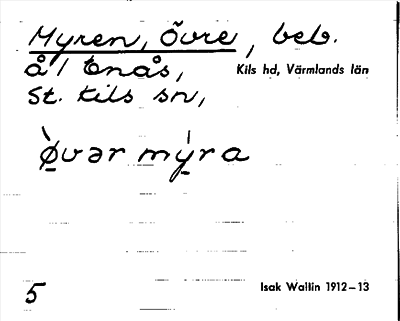 Myren, Övre, beb.
å/ Enås, Kils hd, Värmlands län
St. Kils sn,
ø̀vər mýra
5 Isak Wallin 1912–13